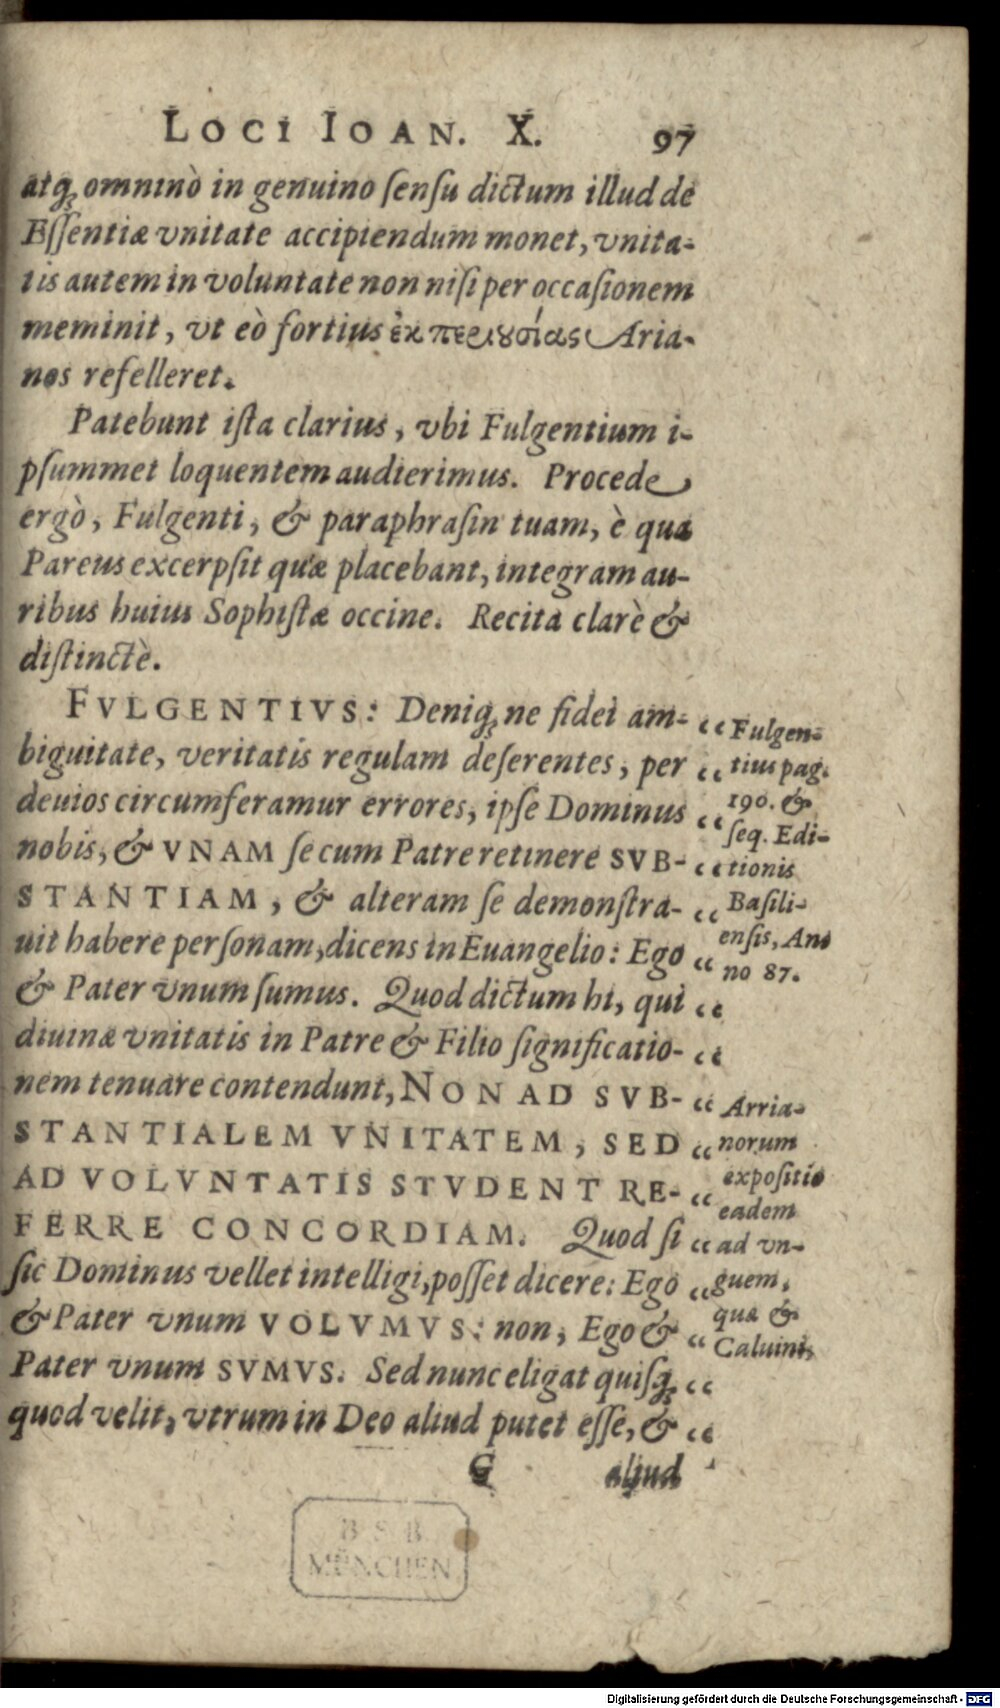 LOCI IOAN. X. 97
atq́ꝫ omninò in genuino ſenſu dictum illud de
Eſſentiæ vnitate accipiendum monet, vnita-
tis autem in voluntate non niſi per occaſionem
meminit, vt eò fortius ἐκ περιουσίας Aria-
nos refelleret.
Patebunt iſta clarius, vbi Fulgentium i-
pſummet loquentem audierimus. Procede
ergò, Fulgenti, & paraphraſin tuam, è qua
Pareus excerpſit quæ placebant, integram au-
ribus huius Sophiſtæ occine. Recita clarè &
diſtinctè.
FVLGENTIVS: Deniq́ꝫ ne fidei am-
biguitate, veritatis regulam deſerentes, per
deuios circumferamur errores, ipſe Dominus
nobis, & VNAM ſe cum Patre retinere SVB-
STANTIAM, & alteram ſe demonſtra-
uit habere perſonam, dicens in Euangelio: Ego
& Pater vnum ſumus. Quod dictum hi, qui
diuinæ vnitatis in Patre & Filio ſignificatio-
nem tenuare contendunt, NON AD SVB-
STANTIALEM VNITATEM, SED
AD VOLVNTATIS STVDENT RE-
FERRE CONCORDIAM. Quod ſi
ſic Dominus vellet intelligi, poſſet dicere: Ego
& Pater vnum VOLVMVS: non, Ego &
Pater vnum SVMVS. Sed nunc eligat quiſq́ꝫ
quod velit, vtrum in Deo aliud putet eſſe, &
G aliud
“ Fulgen-
“ tius pag.
190. &
“ ſeq. Edi-
“ tionis
“ Baſili-
enſis, An-
“ no 87.
“
“
“ Arria-
“ norum
expoſitio
“ eadem
“ ad vn-
“ guem,
quæ &
“ Caluini,
“
“
B S B
MÜNCHEN
Digitalisierung gefördert durch die Deutsche Forschungsgemeinschaft - DFG